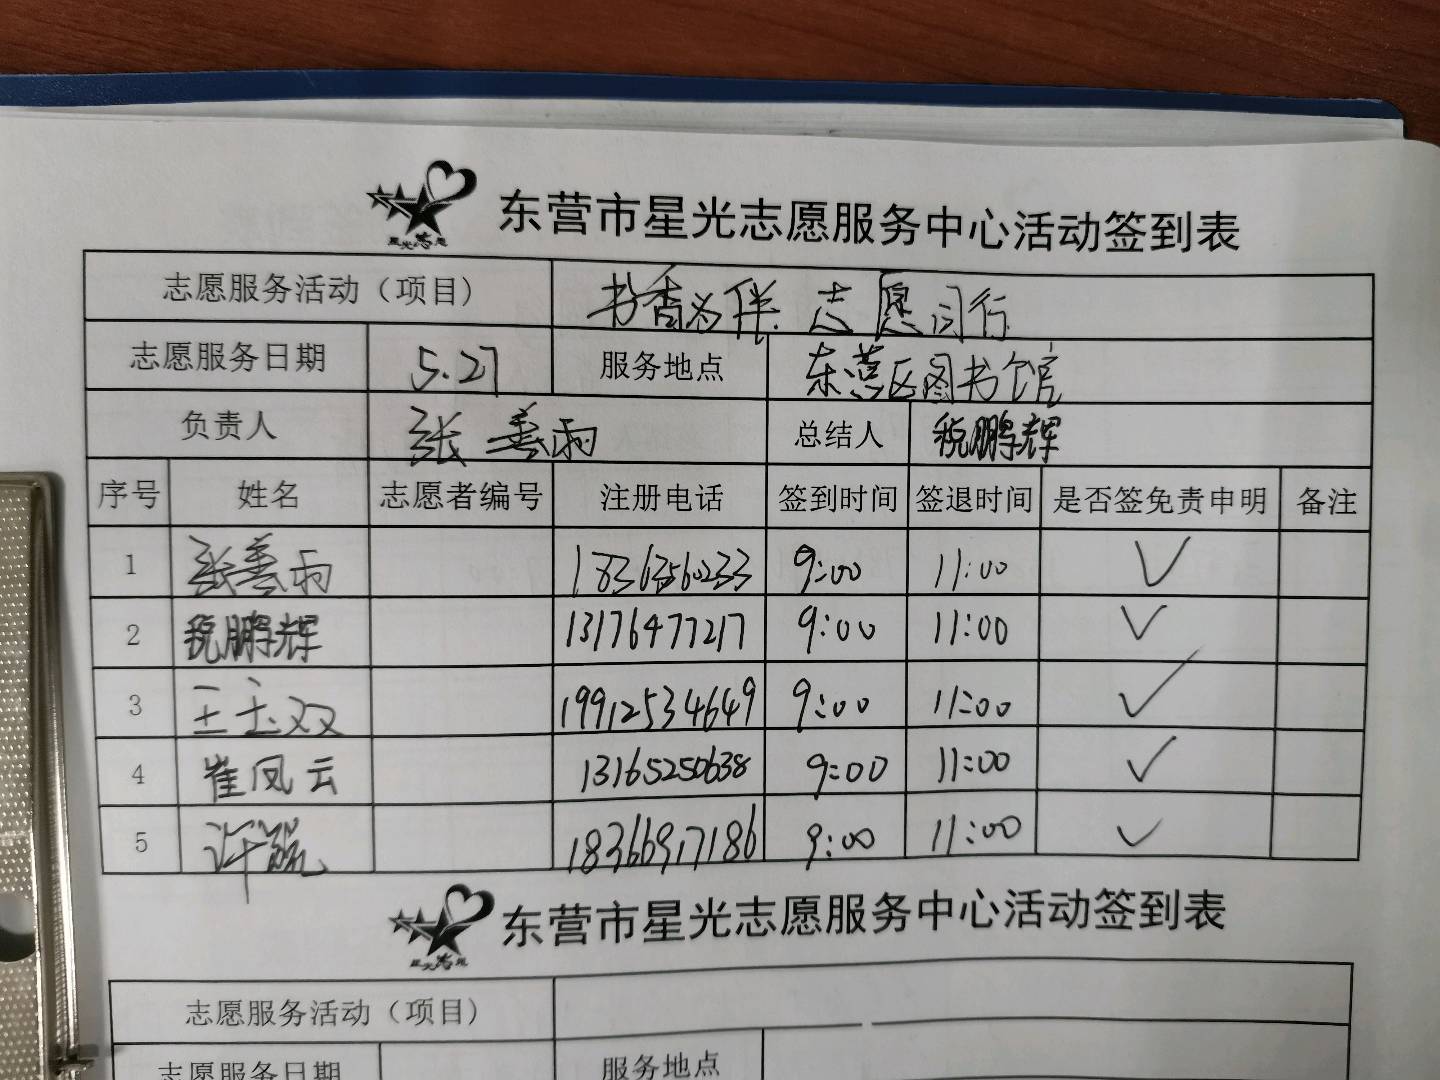 星光志愿
东营市星光志愿服务中心活动签到表
志愿服务活动（项目） 书香为伴 志愿同行
志愿服务日期 5.27 服务地点 东营区图书馆
负责人 张善雨 总结人 税鹏辉
序号 姓名 志愿者编号 注册电话 签到时间 签退时间 是否签免责申明 备注
1 张善雨 18363560233 9:00 11:00 ✓
2 税鹏辉 13176477217 9:00 11:00 ✓
3 王玉双 19912534649 9:00 11:00 ✓
4 崔凤云 13165250638 9:00 11:00 ✓
5 许 18366917186 9:00 11:00 ✓
星光志愿
东营市星光志愿服务中心活动签到表
志愿服务活动（项目）
志愿服务日期 服务地点